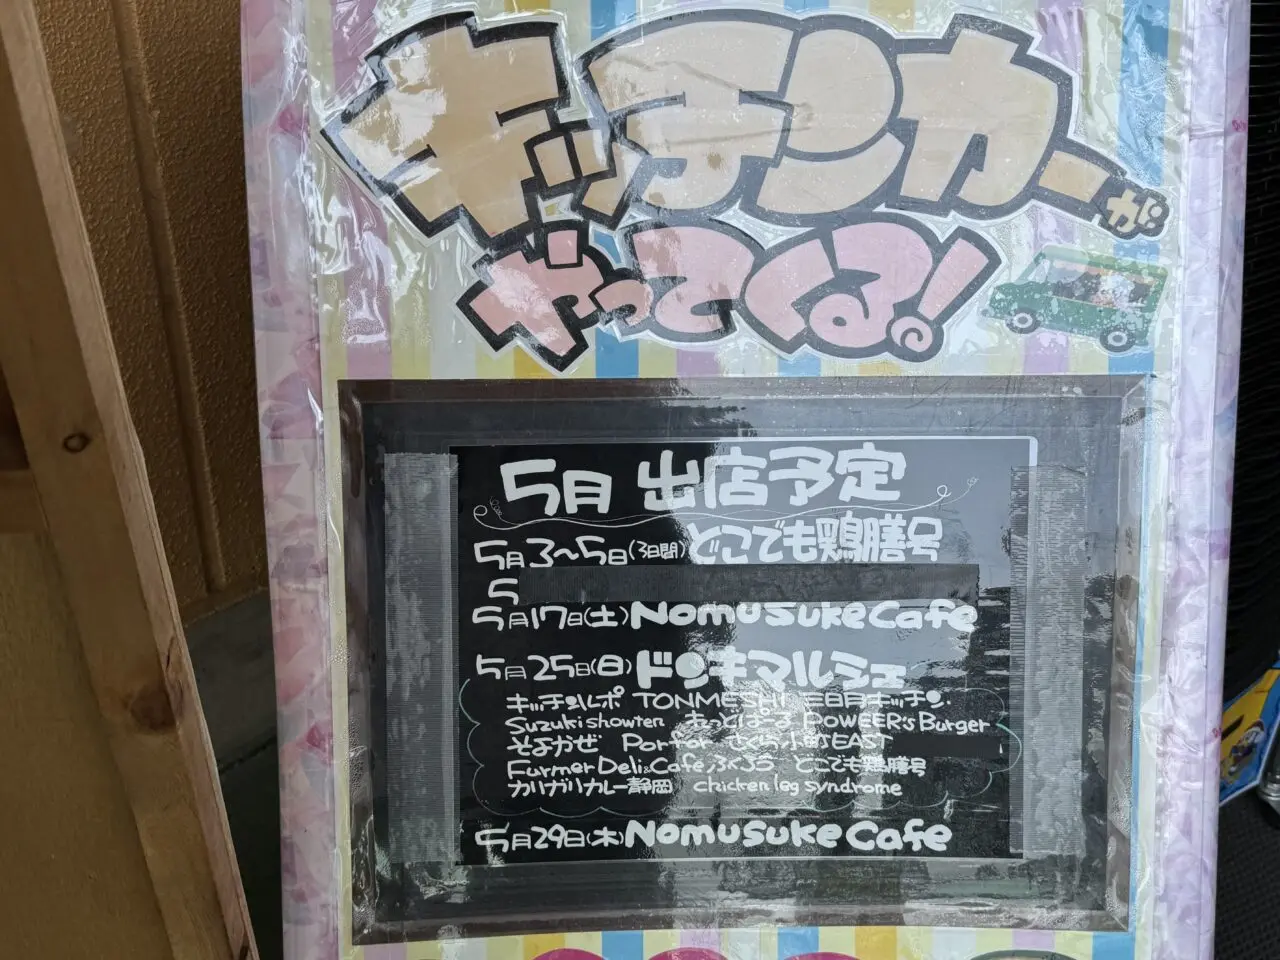 キッチンカーが
やってくる!
5月 出店予定
5月3~5日(3日間)どこでも鶏膳号
5
5月17日(土)Nomusuke Cafe
5月25日(日)ドンキマルシェ
キッチンルポ TONMESHI 三日月キッチン
Suzuki showten ホットぱーる POWEER's Burger
そよかぜ Porfor さくら小町EAST
Furmer Deli&Cafe ふくろう どこでも鶏膳号
ガリガリカレー静岡 chicken leg syndrome
5月29日(木)Nomusuke Cafe